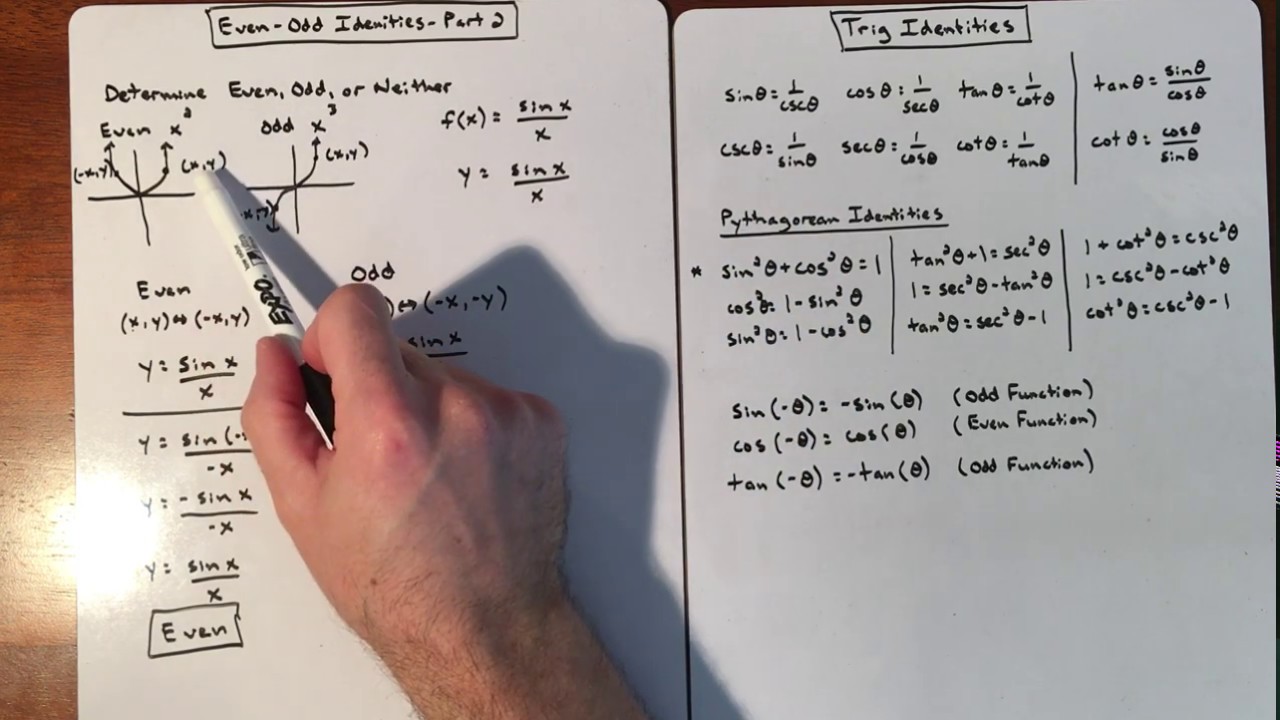 Even-Odd Idenities-Part 2
Determine Even, Odd, or Neither
Even x²
Odd x³
(-x,y)
(x,y)
(x,y)
f(x) = sin x / x
y = sin x / x
Even
(x,y) ↔ (-x,y)
y = sin x / x
y = sin(-
-x
y = -sin x / -x
y = sin x / x
Even
Odd
) ↔ (-x,-y)
sin x
EXPO
Trig Identities
sinθ = 1/cscθ cosθ = 1/secθ tanθ = 1/cotθ tanθ = sinθ/cosθ
cscθ = 1/sinθ secθ = 1/cosθ cotθ = 1/tanθ cotθ = cosθ/sinθ
Pythagorean Identities
* sin²θ + cos²θ = 1 tan²θ + 1 = sec²θ 1 + cot²θ = csc²θ
cos²θ = 1 - sin²θ 1 = sec²θ - tan²θ 1 = csc²θ - cot²θ
sin²θ = 1 - cos²θ tan²θ = sec²θ - 1 cot²θ = csc²θ - 1
sin(-θ) = -sin(θ) (Odd Function)
cos(-θ) = cos(θ) (Even Function)
tan(-θ) = -tan(θ) (Odd Function)